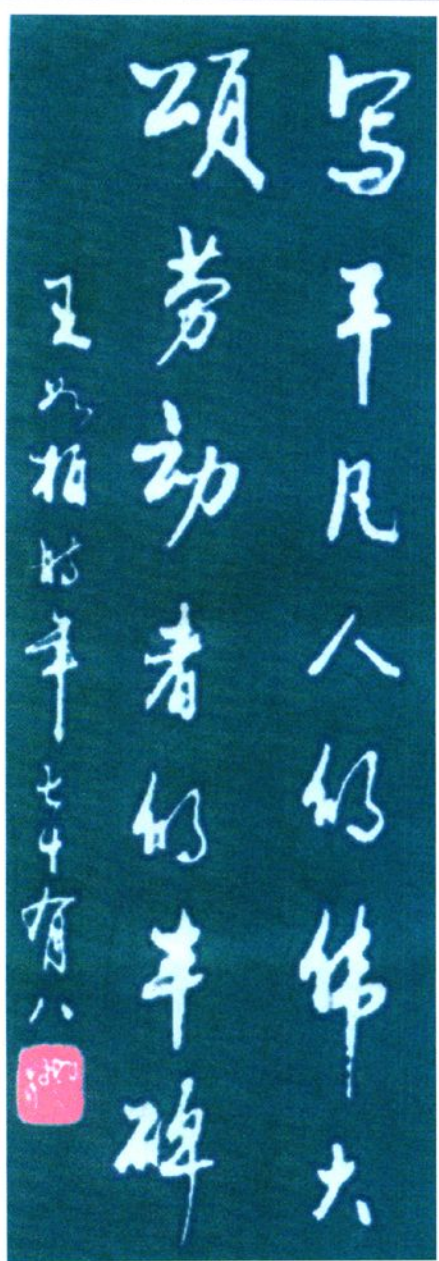 写平凡人的伟大
颂劳动者的丰碑
王如柏时年七十有八